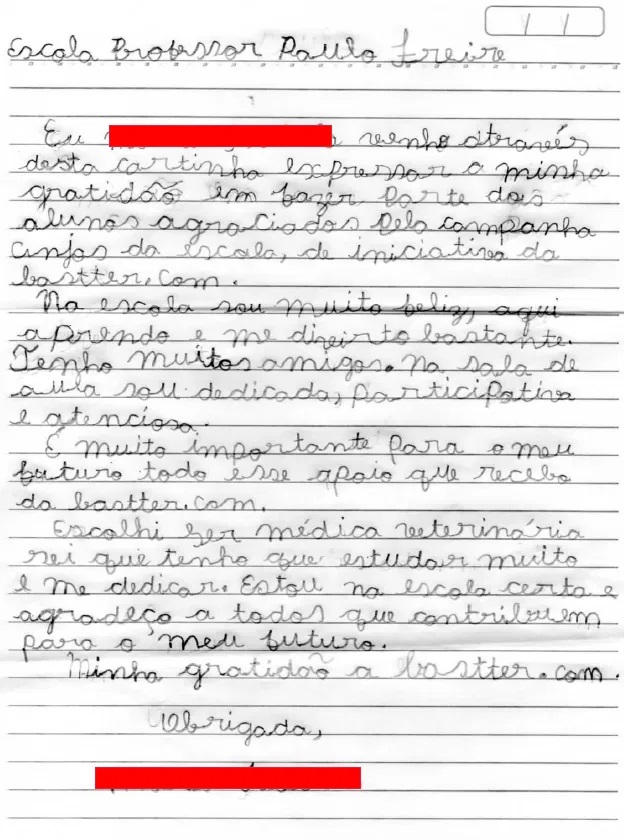 Escola Professor Paulo Freire
Eu venho através
desta cartinha expressar a minha
gratidão em fazer parte dos
alunos agraciados pela campanha
anjos da escola, de iniciativa da
bastter.com.
Na escola sou muito feliz, aqui
aprendo e me divirto bastante.
Tenho muitos amigos. Na sala de
aula sou dedicada, participativa
e atenciosa.
É muito importante para o meu
futuro todo esse apoio que recebo
da bastter.com.
Escolhi ser médica veterinária
sei que tenho que estudar muito
e me dedicar. Estou na escola certa e
agradeço a todos que contribuem
para o meu futuro.
Minha gratidão a bastter.com.
Obrigada,